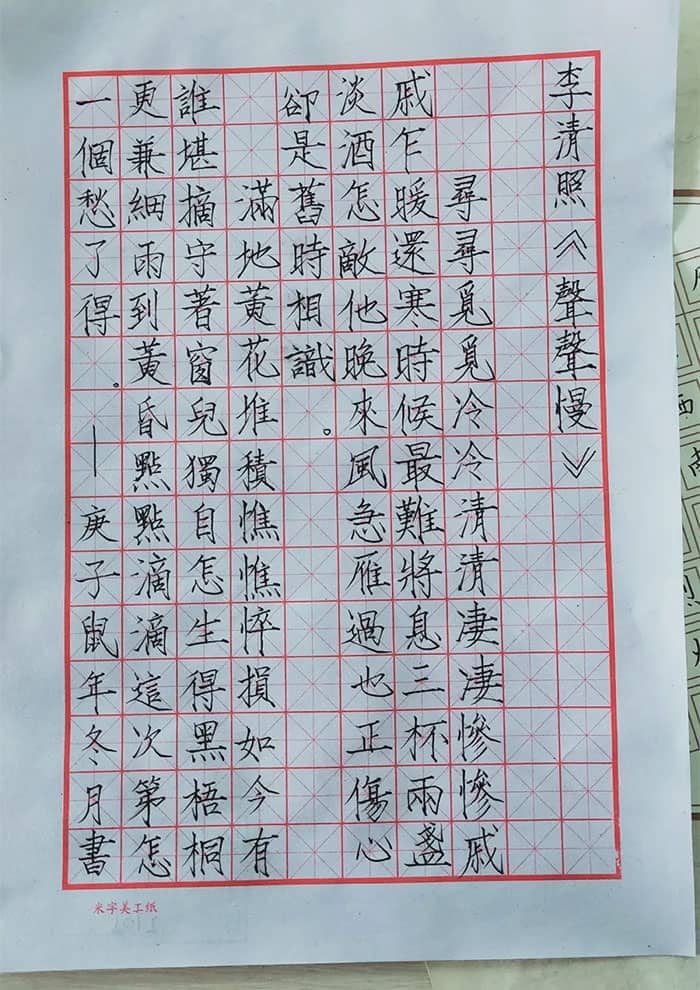 李清照《聲聲慢》
尋尋覓覓冷冷清清凄凄慘慘戚
戚乍暖還寒時候最難將息三杯兩盞
淡酒怎敵他晚來風急雁過也正傷心
卻是舊時相識。
滿地黃花堆積憔憔悴損如今有
誰堪摘守著窗兒獨自怎生得黑梧桐
更兼細雨到黃昏點點滴滴這次第怎
一個愁了得。—庚子鼠年冬月書
米字美工纸